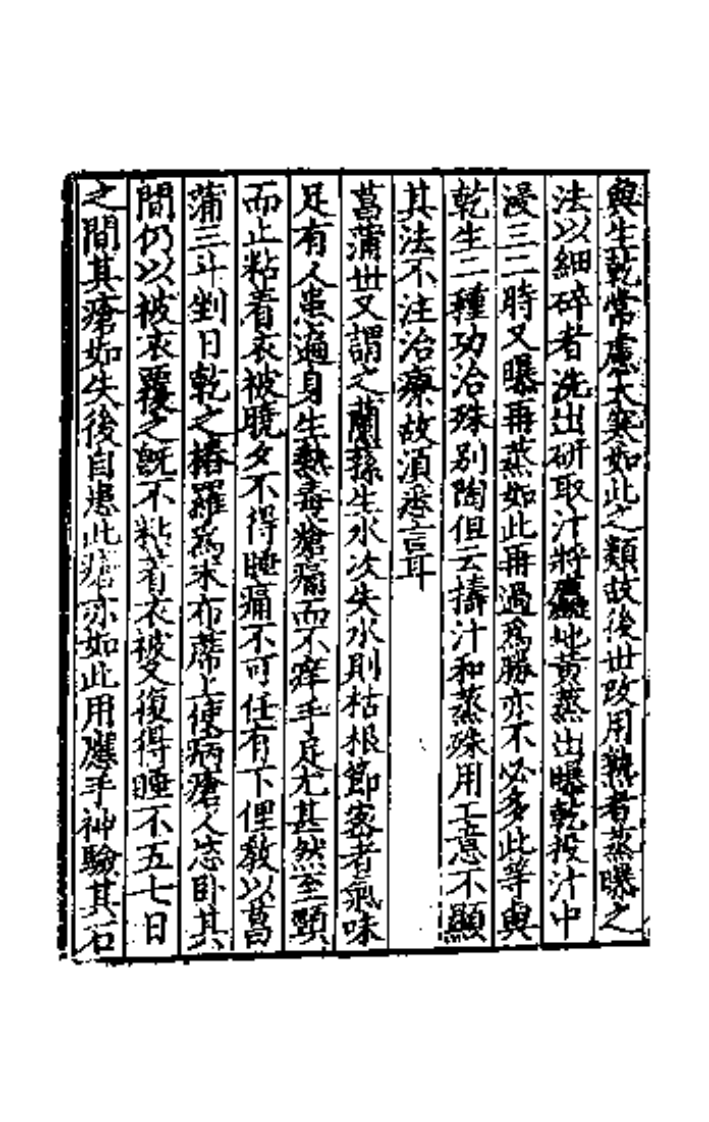 與生乾常慮大寒如此之類故後世改用熟者蒸曝之
法以細碎者洗出研取汁將麤地黄蒸出曝乾投汁中
浸三二時又曝再蒸如此再過爲勝亦不必多此等與
乾生二種功治殊别陶但云擣汁和蒸殊用工意不顯
其法不注治療故須悉言耳
菖蒲世又謂之蘭蓀生水次失水則枯根節密者氣味
足有人患遍身生熱毒瘡痛而不痒手足尤甚然至頸
而止粘着衣被曉夕不得睡痛不可任有下俚教以菖
蒲三斗剉日乾之擣羅爲末布蓆上使病瘡人恣卧其
間仍以被衣覆之既不粘着衣被又復得睡不五七日
之間其瘡如失後自患此瘡亦如此用應手神驗其石